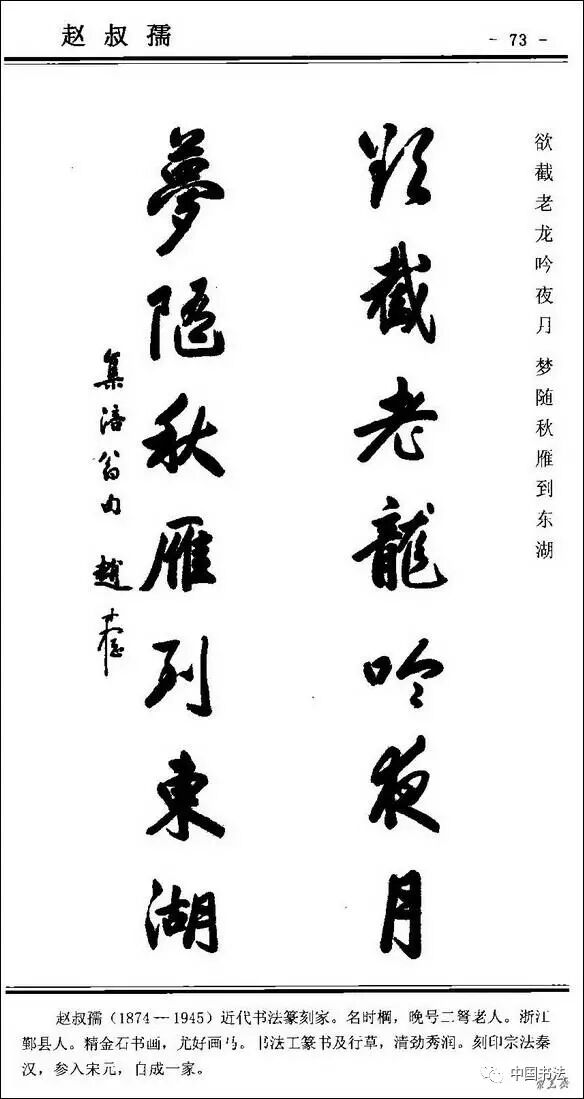 赵叔孺
- 73 -
欲截老龙吟夜月 梦随秋雁到东湖
欲截老龍吟夜月
夢隨秋雁到東湖
集涪翁句 趙時棡
赵叔孺(1874—1945)近代书法篆刻家。名时棡,晚号二弩老人。浙江
鄞县人。精金石书画,尤好画马。书法工篆书及行草,清劲秀润。刻印宗法秦
汉,参入宋元,自成一家。
中国书法